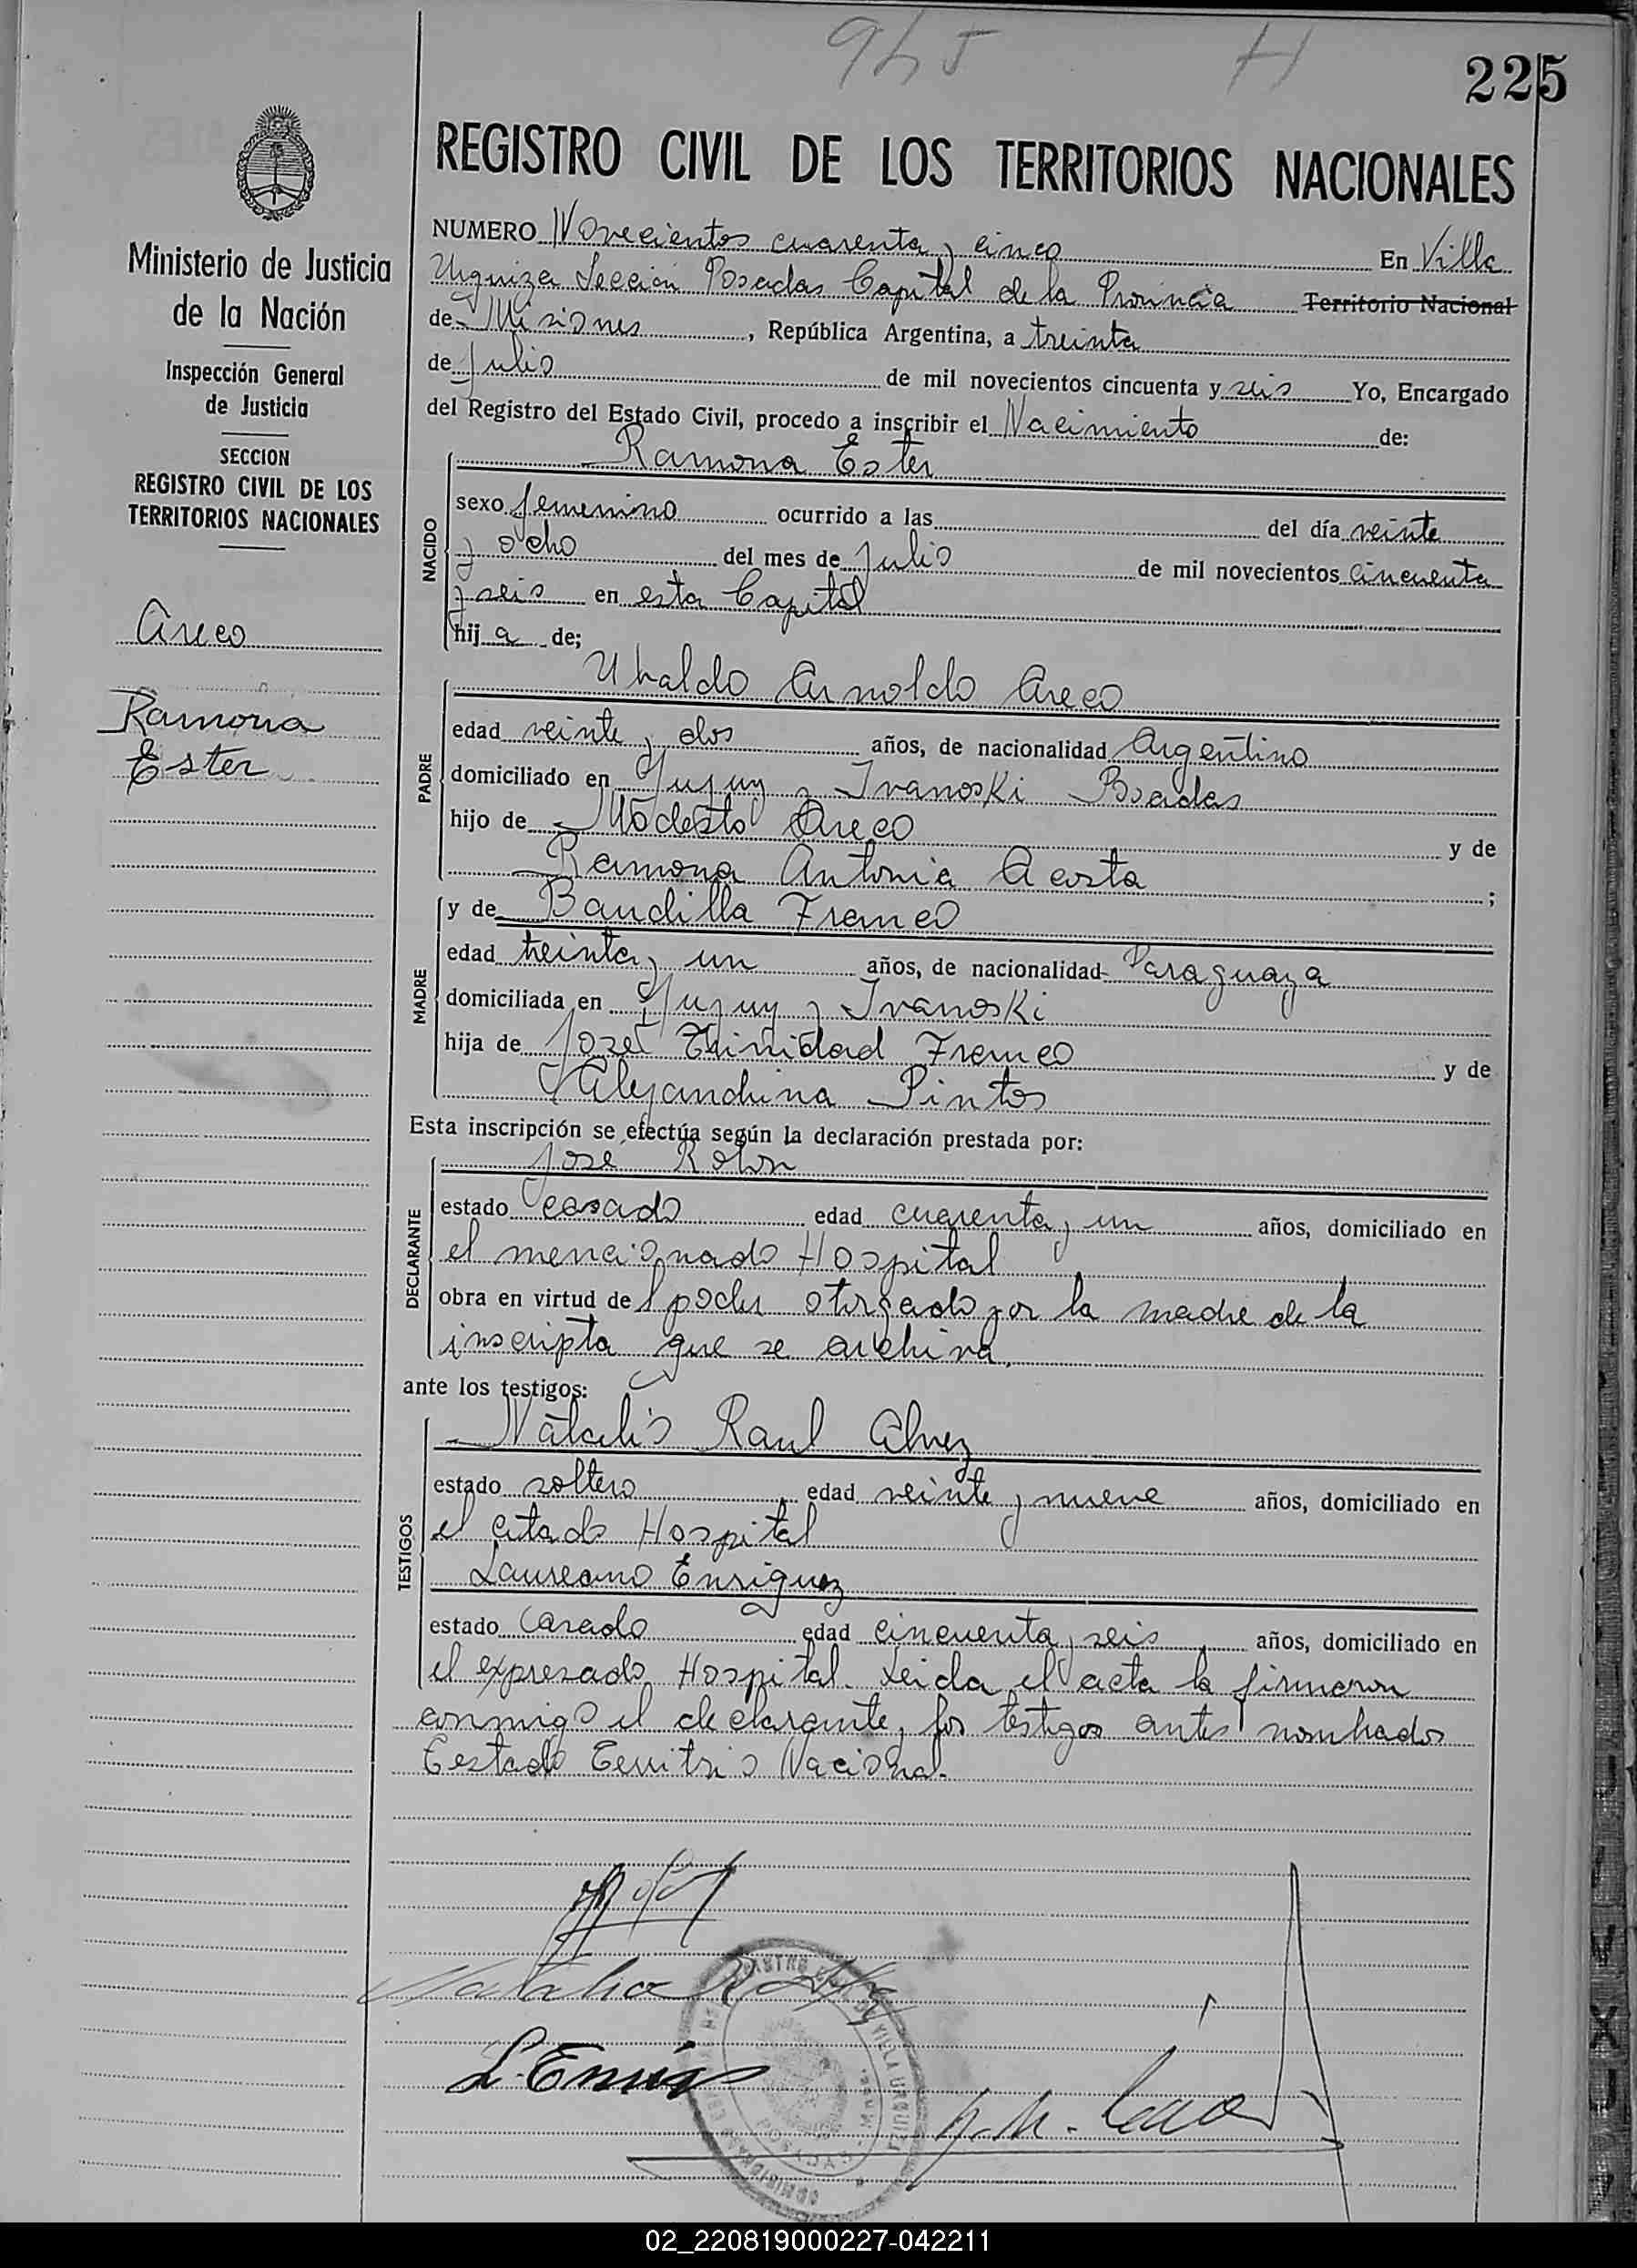 945 H
225
REGISTRO CIVIL DE LOS TERRITORIOS NACIONALES
Ministerio de Justicia
de la Nación
Inspección General
de Justicia
SECCION
REGISTRO CIVIL DE LOS
TERRITORIOS NACIONALES
Areco
Ramona
Ester
NUMERO Novecientos cuarenta y cinco En Villa
Urquiza Sección Posadas Capital de la Provincia Territorio Nacional
de Misiones, República Argentina, a treinta
de Julio de mil novecientos cincuenta y seis Yo, Encargado
del Registro del Estado Civil, procedo a inscribir el Nacimiento de:
Ramona Ester
NACIDO
sexo femenino ocurrido a las del día veinte
y ocho del mes de Julio de mil novecientos cincuenta
y seis en esta Capital
hija de;
Ubaldo Arnoldo Areco
PADRE
edad veinte y dos años, de nacionalidad Argentino
domiciliado en Jujuy y Ivanoski Posadas
hijo de Modesto Areco y de
Ramona Antonia Acosta ;
y de Baudilla Franco
MADRE
edad treinta y un años, de nacionalidad Paraguaya
domiciliada en Jujuy y Ivanoski
hija de José Trinidad Franco y de
Alejandrina Pintos
Esta inscripción se efectúa según la declaración prestada por:
José Rolon
DECLARANTE
estado casado edad cuarenta y un años, domiciliado en
el mencionado Hospital
obra en virtud del poder otorgado por la madre de la
inscripta que se archiva.
ante los testigos:
Natalio Raul Alvez
TESTIGOS
estado soltero edad veinte y nueve años, domiciliado en
el citado Hospital
Laureano Enriquez
estado casado edad cincuenta y seis años, domiciliado en
el expresado Hospital. Leida el acta la firmaron
conmigo el declarante y los testigos antes nombrados
Testado Territorio Nacional.
Natalio R
L. Enriq
VILLA URQUIZA
02_220819000227-042211